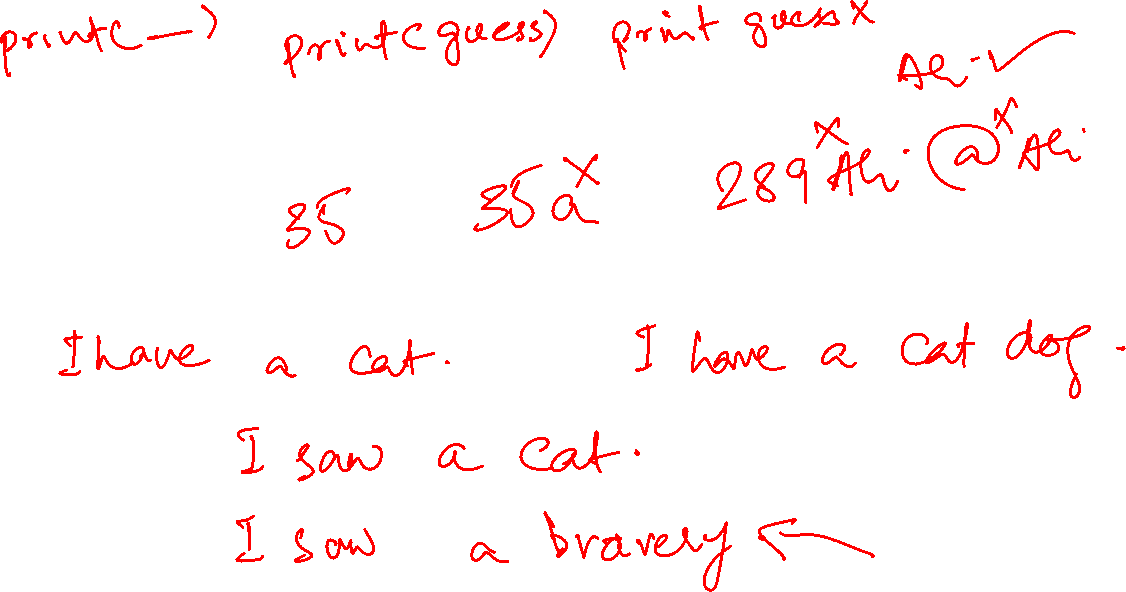 print(—) print(guess) print guess x
Ali ✓
35 35a x 289 x Ali @ x Ali
I have a cat. I have a cat dog.
I saw a cat.
I saw a bravery ←